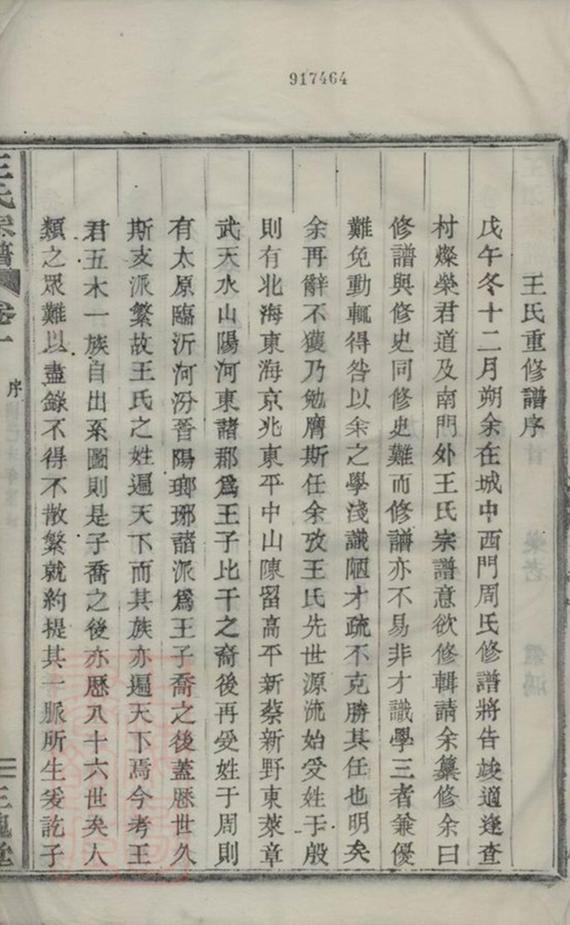 917464
王氏重修譜序
戊午冬十二月朔余在城中西門周氏修譜將告竣適逢查
村燦榮君道及南門外王氏宗譜意欲修輯請余纂修余曰
修譜與修史同修史難而修譜亦不易非才識學三者兼優
難免動輒得咎以余之學淺識陋才疏不克勝其任也明矣
余再辭不獲乃勉膺斯任余攷王氏先世源流始受姓于殷
則有北海東海京兆東平中山陳留高平新蔡新野東萊章
武天水山陽河東諸郡爲王子比干之裔後再受姓于周則
有太原臨沂河汾晉陽瑯琊諸派爲王子喬之後蓋歷世久
斯支派繁故王氏之姓遍天下而其族亦遍天下焉今考王
君五木一族自出系圖則是子喬之後亦歷八十六世矣人
類之眾難以盡錄不得不散繁就約提其一脈所生爰訖子
王氏宗譜 卷一 序 一 三槐堂